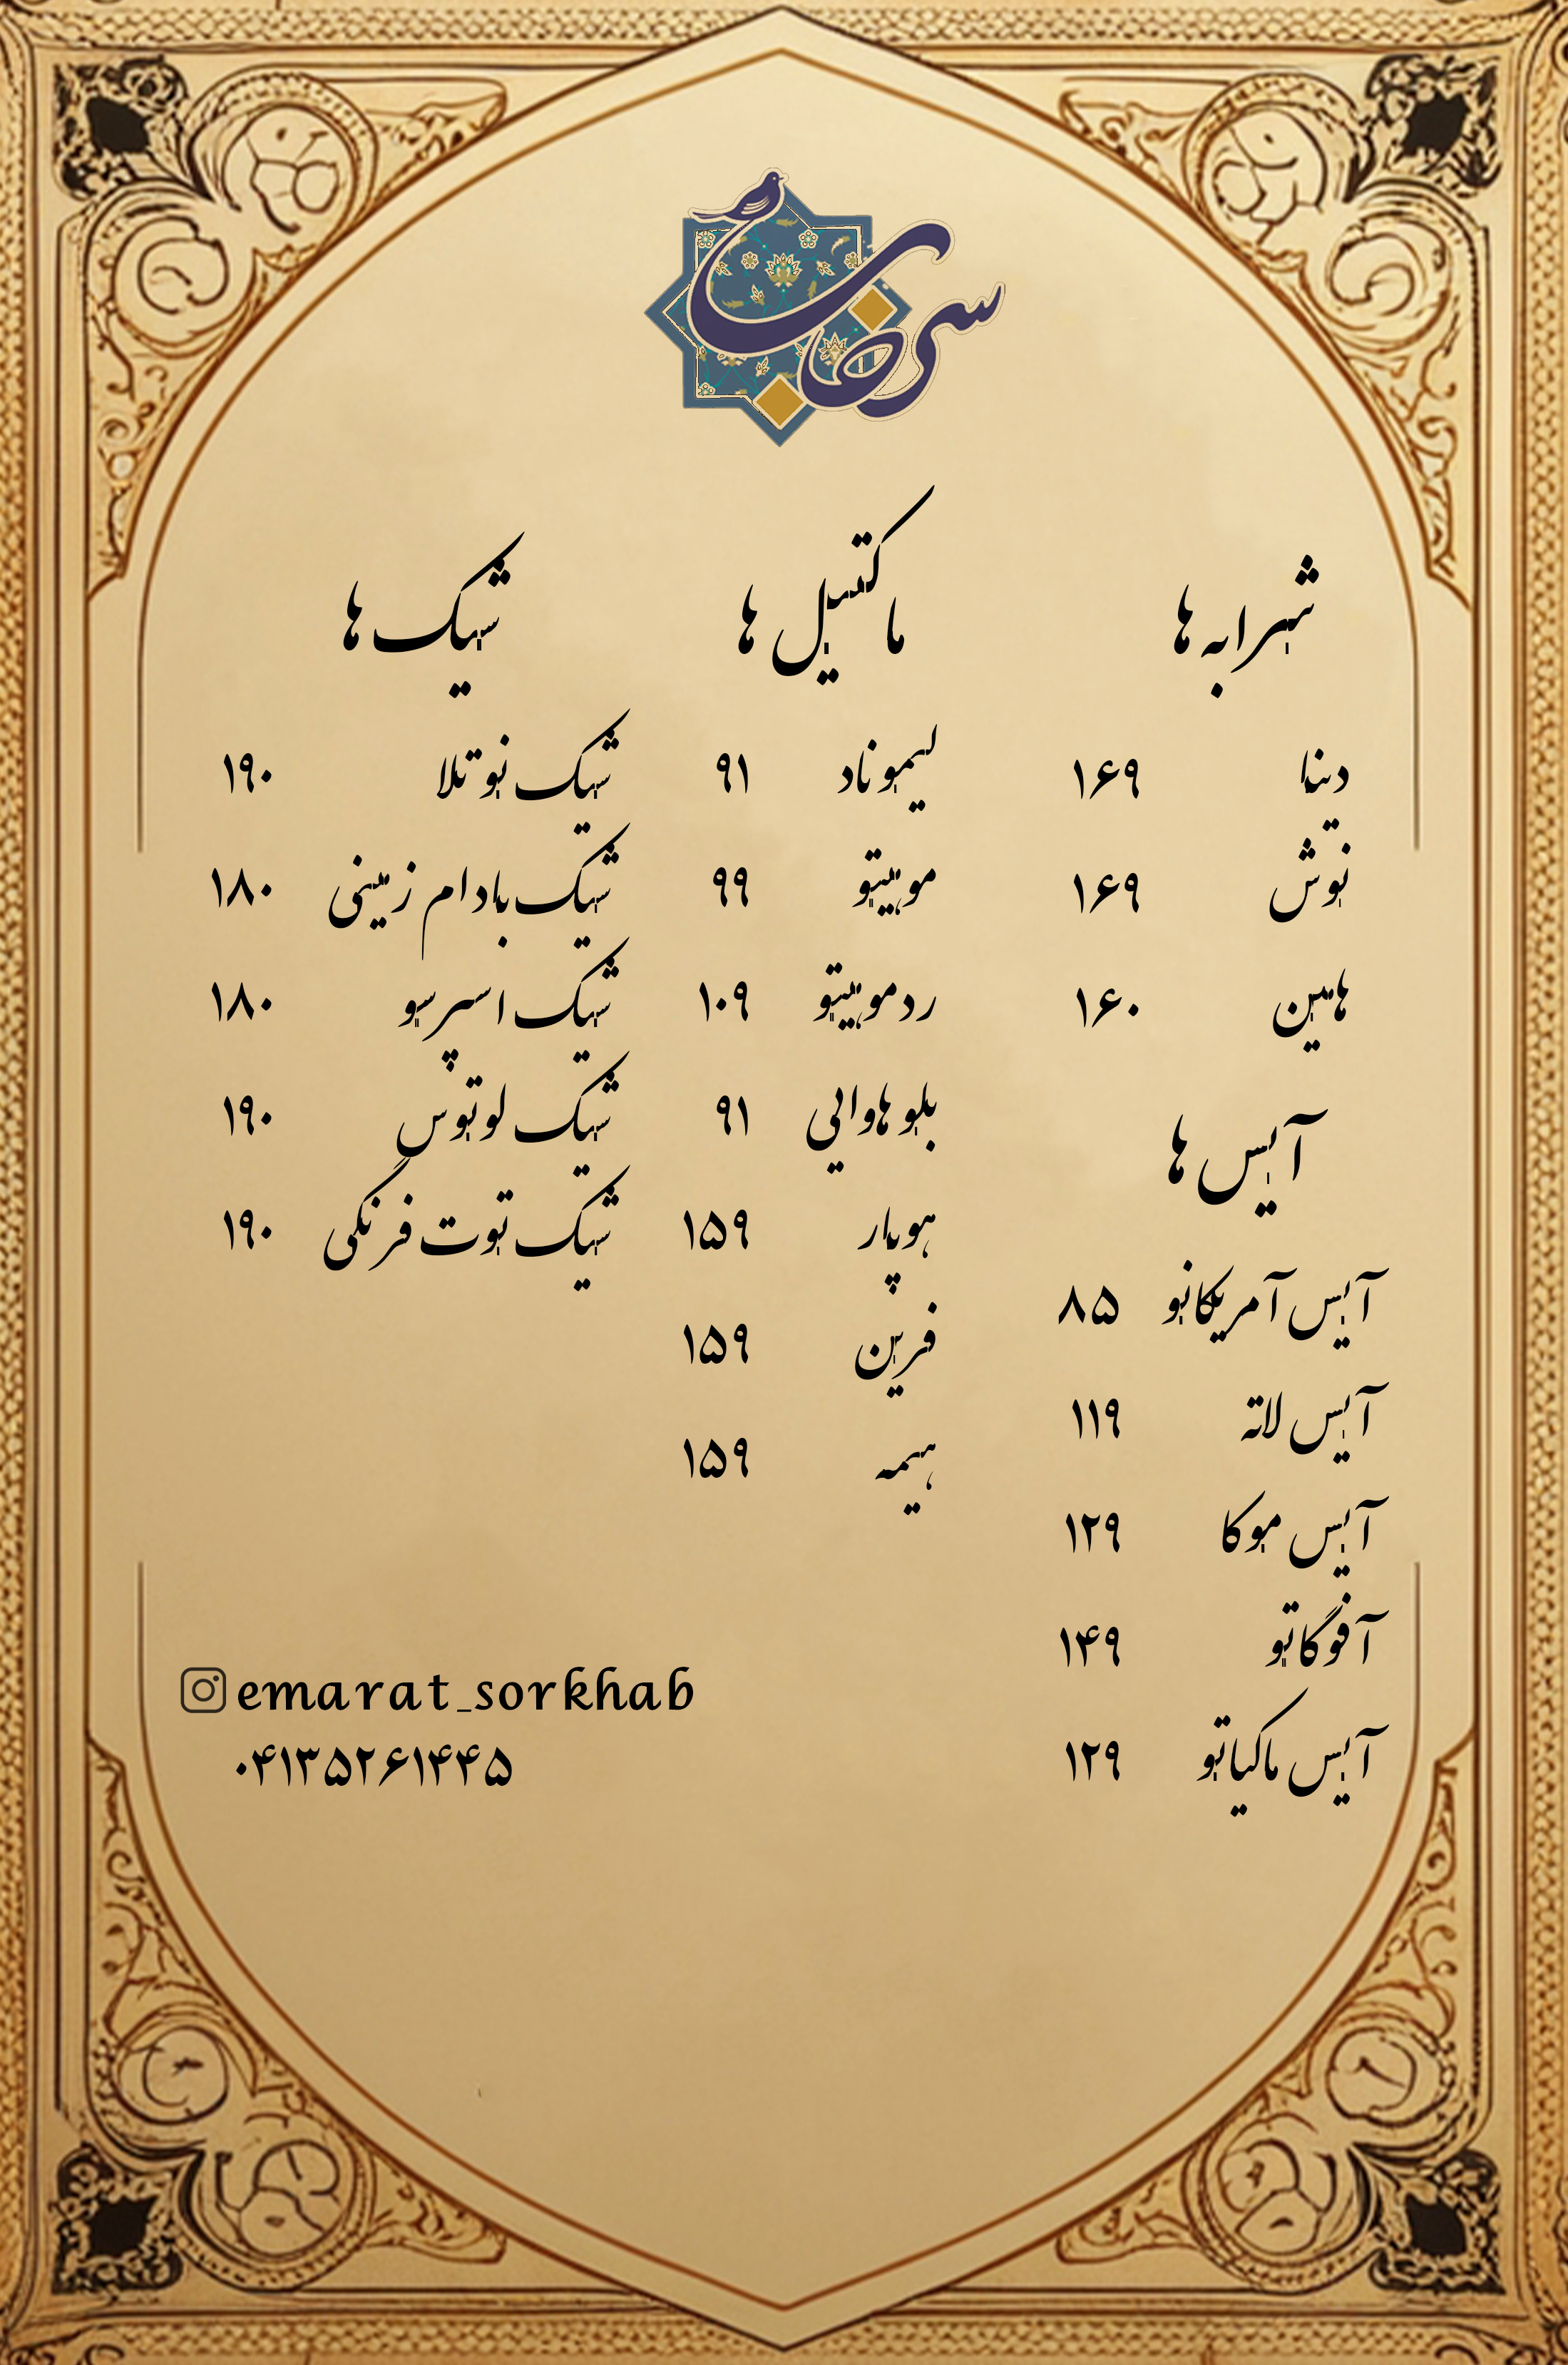 سرخاب
شرابه ها
دینا ۱۶۹
نوش ۱۶۹
هامین ۱۶۰
آیس ها
آیس آمریکانو ۸۵
آیس لاته ۱۱۹
آیس موکا ۱۲۹
آفوگاتو ۱۴۹
آیس ماکیاتو ۱۲۹
ماکتیل ها
لیموناد ۹۱
موهیتو ۹۹
ردموهیتو ۱۰۹
بلو هاوایی ۹۱
هوپار ۱۵۹
فرین ۱۵۹
هیمه ۱۵۹
شیک ها
شیک نوتلا ۱۹۰
شیک بادام زمینی ۱۸۰
شیک اسپرسو ۱۸۰
شیک لوتوس ۱۹۰
شیک توت فرنگی ۱۹۰
emarat_sorkhab
۰۴۱۳۵۲۶۱۴۴۵